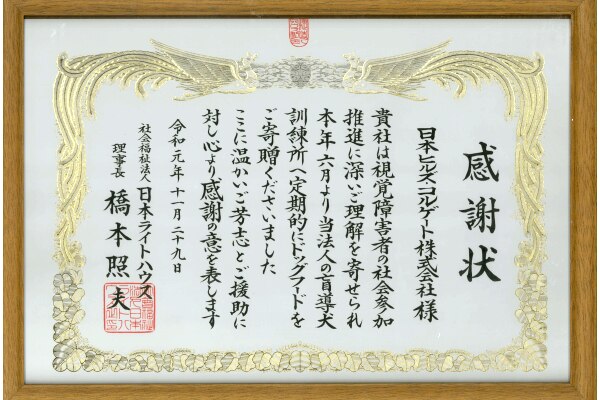 感謝状
日本ヒルズ・コルゲート株式会社様
貴社は視覚障害者の社会参加
推進に深いご理解を寄せられ
本年六月より当法人の盲導犬
訓練所へ定期的にドッグフードを
ご寄贈くださいました
ここに温かいご芳志とご援助に
対し心より感謝の意を表します
令和元年十一月二十九日
社会福祉法人日本ライトハウス
理事長 橋本照夫